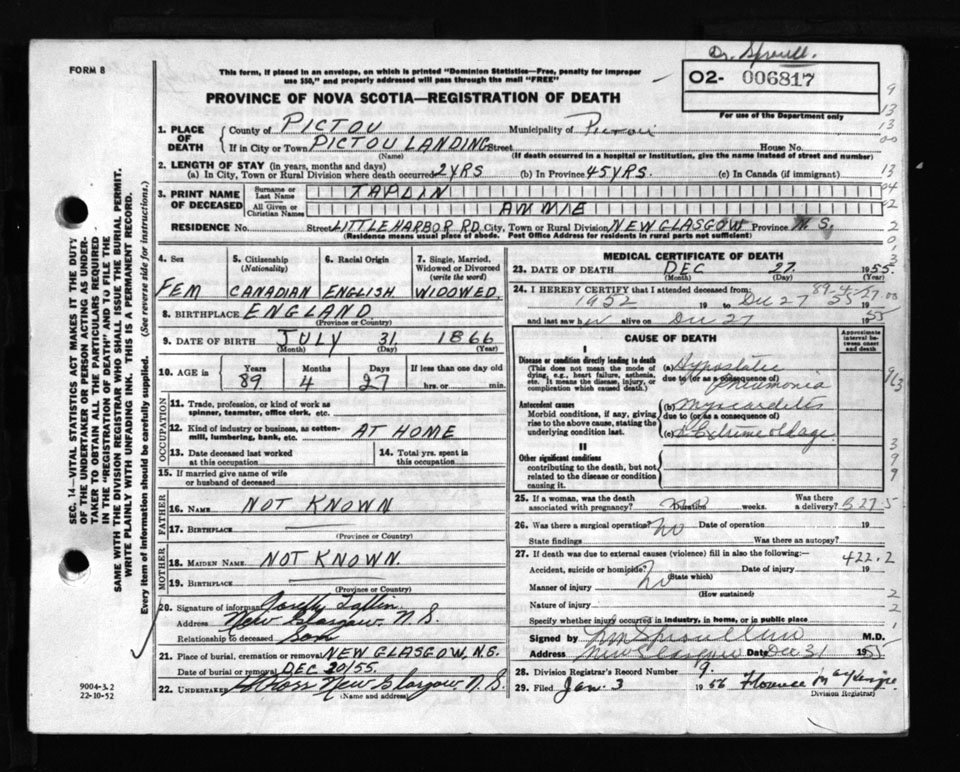 Dr. Sproull.
FORM 8
This form, if placed in an envelope, on which is printed "Dominion Statistics—Free, penalty for improper
use $50," and properly addressed will pass through the mail "FREE"
02- 006817
For use of the Department only
PROVINCE OF NOVA SCOTIA—REGISTRATION OF DEATH
1. PLACE OF DEATH County of PICTOU Municipality of Pictou
If in City or Town PICTOU LANDING Street House No.
(Name) (If death occurred in a hospital or institution, give the name instead of street and number)
2. LENGTH OF STAY (in years, months and days)
(a) In City, Town or Rural Division where death occurred 2 YRS (b) In Province 45 YRS. (c) In Canada (if immigrant)
3. PRINT NAME OF DECEASED Surname or Last Name TAPLIN
All Given or Christian Names ANNIE
RESIDENCE No. Street LITTLE HARBOR RD. City, Town or Rural Division NEW GLASGOW Province N. S.
(Residence means usual place of abode. Post Office Address for residents in rural parts not sufficient)
4. Sex FEM
5. Citizenship (Nationality) CANADIAN
6. Racial Origin ENGLISH
7. Single, Married, Widowed or Divorced (write the word) WIDOWED
8. BIRTHPLACE ENGLAND
(Province or Country)
9. DATE OF BIRTH JULY 31 1866
(Month) (Day) (Year)
10. AGE in Years Months Days If less than one day old
89 4 27 hrs. or min.
OCCUPATION
11. Trade, profession, or kind of work as spinner, teamster, office clerk, etc.
12. Kind of industry or business, as cotton-mill, lumbering, bank, etc. AT HOME
13. Date deceased last worked at this occupation
14. Total yrs. spent in this occupation
15. If married give name of wife or husband of deceased
FATHER
16. Name NOT KNOWN
17. Birthplace
(Province or Country)
MOTHER
18. Maiden Name NOT KNOWN.
19. Birthplace
(Province or Country)
20. Signature of informant Taplin
Address New Glasgow, N. S.
Relationship to deceased Son
21. Place of burial, cremation or removal NEW GLASGOW, N.S.
Date of burial or removal DEC 30/55
22. Undertaker Ross New Glasgow N. S.
(Name and address)
MEDICAL CERTIFICATE OF DEATH
23. DATE OF DEATH DEC 27 1955
(Month) (Day) (Year)
89-4-27
24. I HEREBY CERTIFY that I attended deceased from:
1952 19 to Dec 27 55 19
and last saw her alive on Dec 27 1955
CAUSE OF DEATH
Approximate interval between onset and death
I
Disease or condition directly leading to death
(This does not mean the mode of dying, e.g., heart failure, asthenia, etc. It means the disease, injury, or complication which caused death.)
(a) Hypostatic
due to (or as a consequence of) Pneumonia
Antecedent causes
Morbid conditions, if any, giving rise to the above cause, stating the underlying condition last.
(b) Myocarditis
due to (or as a consequence of)
(c) Extreme old age
II
Other significant conditions
contributing to the death, but not related to the disease or condition causing it.
25. If a woman, was the death associated with pregnancy? no Duration weeks. Was there a delivery?
26. Was there a surgical operation? no Date of operation 19
State findings Was there an autopsy?
27. If death was due to external causes (violence) fill in also the following:
422.2
Accident, suicide or homicide? no Date of injury 19
(State which)
Manner of injury
(How sustained)
Nature of injury
Specify whether injury occurred in industry, in home, or in public place
Signed by M.D.
Address New Glasgow Date Dec 31 1955
28. Division Registrar's Record Number 9.
29. Filed Jan. 3 1956 Florence McKenzie
Division Registrar
SEC. 14—VITAL STATISTICS ACT MAKES IT THE DUTY
OF THE UNDERTAKER OR PERSON ACTING AS UNDER-
TAKER TO OBTAIN ALL THE PARTICULARS REQUIRED
IN THE "REGISTRATION OF DEATH" AND TO FILE THE
SAME WITH THE DIVISION REGISTRAR WHO SHALL ISSUE THE BURIAL PERMIT.
WRITE PLAINLY WITH UNFADING INK. THIS IS A PERMANENT RECORD.
Every item of information should be carefully supplied. (See reverse side for instructions.)
9004-3.2
22-10-52